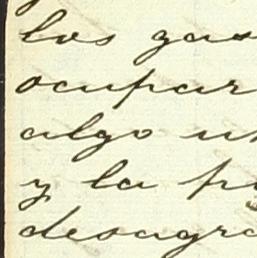 los gas
ocupar
algo
y la
desagra